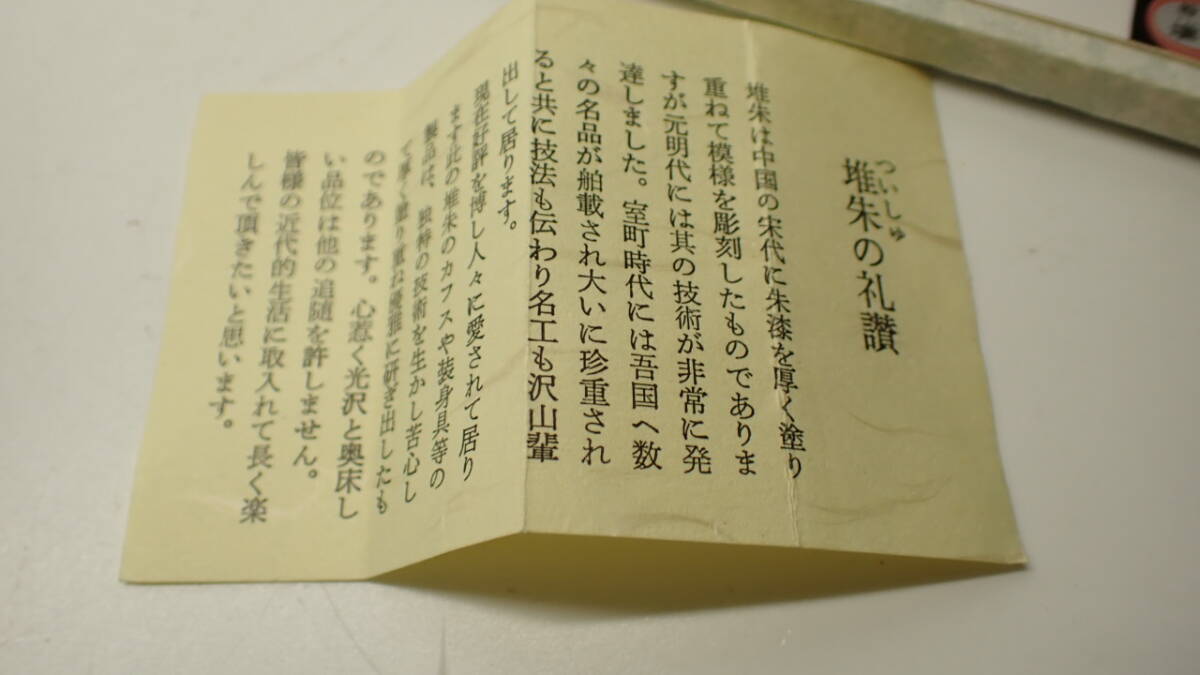 ついしゅ
堆朱の礼讃
堆朱は中国の宋代に朱漆を厚く塗り
重ねて模様を彫刻したものでありま
すが元明代には其の技術が非常に発
達しました。室町時代には吾国へ数
々の名品が舶載され大いに珍重され
ると共に技法も伝わり名工も沢山輩
出して居ります。
現在好評を博し人々に愛されて居り
ます此の堆朱のカフスや装身具等の
製品は、独特の技術を生かし苦心し
て厚く塗り重ね優雅に研ぎ出したも
のであります。心惹く光沢と奥床し
い品位は他の追随を許しません。
皆様の近代的生活に取入れて長く楽
しんで頂きたいと思います。